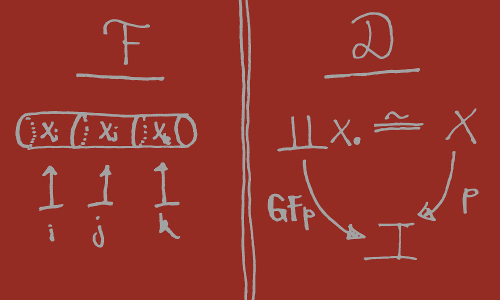 F
X_i X_j X_k
i j k
D
∐ X. ≅ X
GF_p p
I